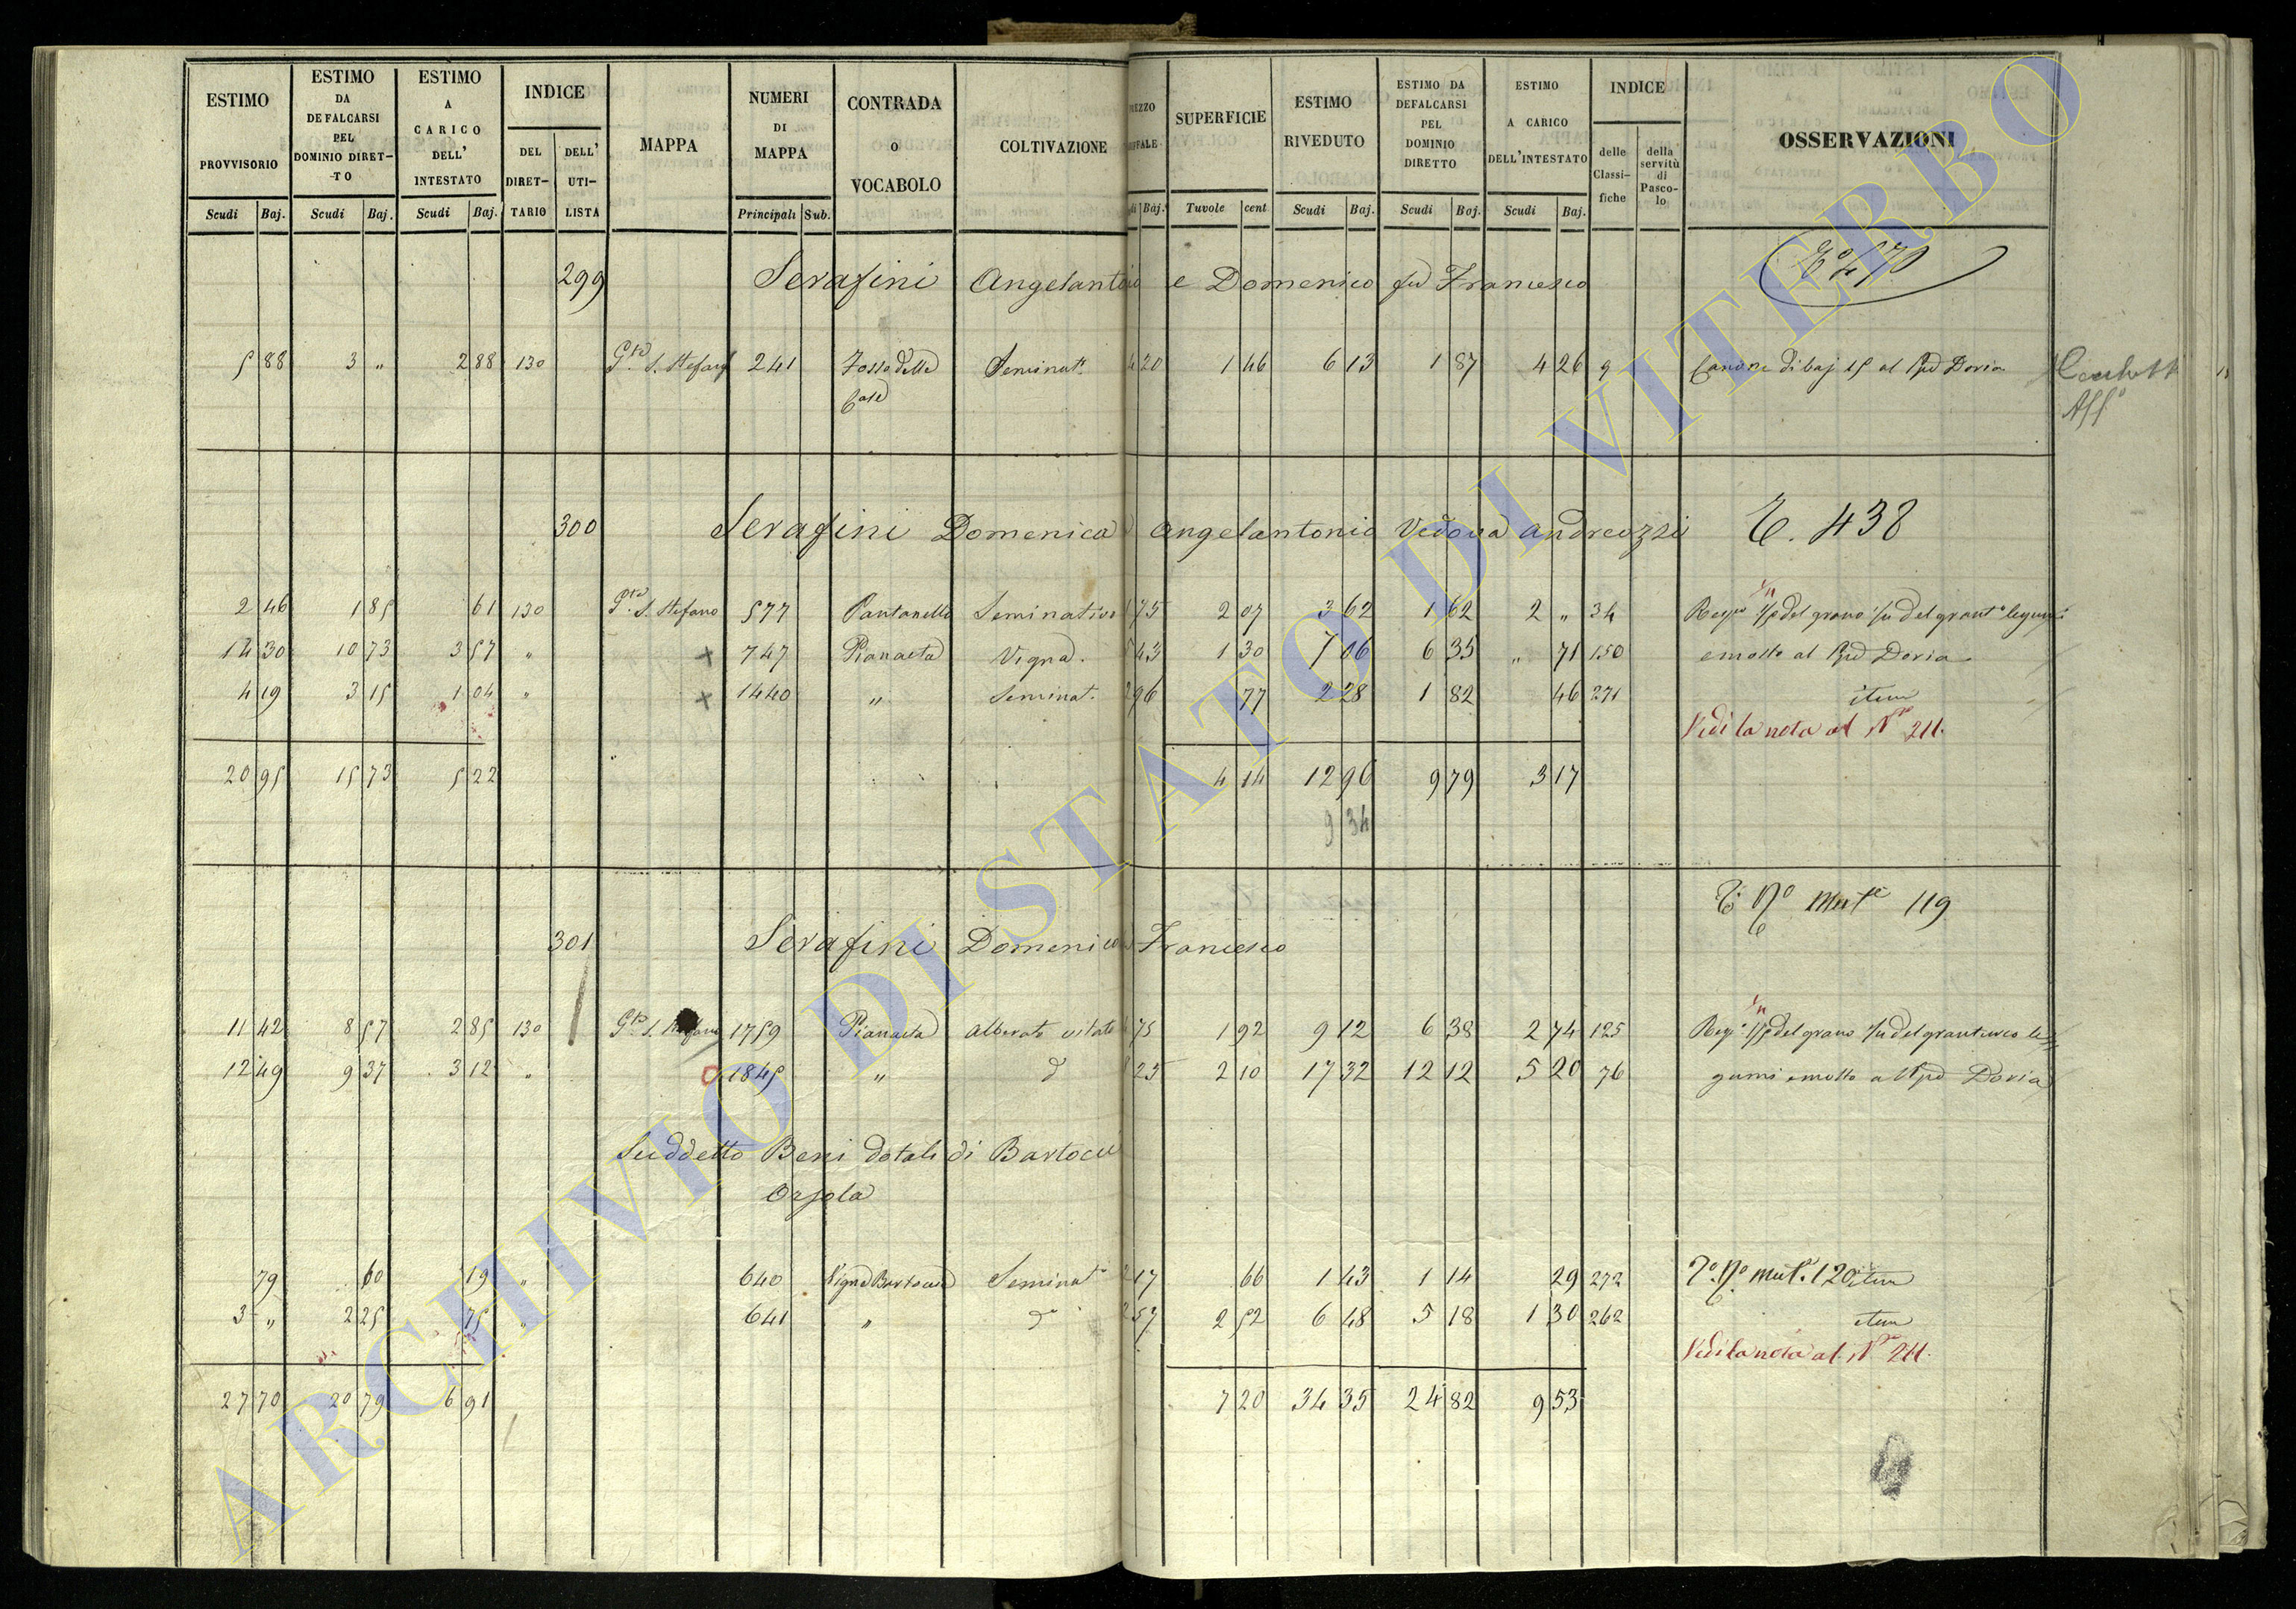 ESTIMO PROVVISORIO Scudi Baj.
ESTIMO DA DEFALCARSI PEL DOMINIO DIRET-TO Scudi Baj.
ESTIMO A CARICO DELL' INTESTATO Scudi Baj.
INDICE DEL DIRET-TARIO DELL' UTI-LISTA
MAPPA
NUMERI DI MAPPA Principali Sub.
CONTRADA O VOCABOLO
COLTIVAZIONE
SUPERFICIE Tavole cent
ESTIMO RIVEDUTO Scudi Baj.
ESTIMO DA DEFALCARSI PEL DOMINIO DIRETTO Scudi Baj.
ESTIMO A CARICO DELL'INTESTATO Scudi Baj.
INDICE delle Classi-fiche della servitù di Pasco-lo
OSSERVAZIONI
299 Serafini Angelantonio e Domenico fu Francesco
5 88 3 " 2 88 130 S. Stefano 241 Fosso delle Case Seminat. 20 1 46 6 13 1 87 4 26 9 Canone di baj 15 al Doria
300 Serafini Domenica Angelantonio Vedova Andreozzi T. 438
2 46 1 85 61 130 S. Stefano 577 Pantanello Seminativo 75 2 07 3 62 1 62 2 " 34 del grano del grant legumi
14 30 10 73 3 57 " + 747 Pianaeta Vigna. 43 1 30 7 06 6 35 " 71 150 e mosto al Doria
4 19 3 15 1 04 " + 1440 " Seminat. 96 77 2 28 1 82 46 271 item
Vedi la nota al N° 211.
20 95 15 73 5 22 4 14 12 96 9 79 3 17
9 34
T. N° Mut. 119
301 Serafini Domenico Francesco
11 42 8 57 2 85 130 S. Stefano 1759 Pianaeta Alberato vitato 75 1 92 9 12 6 38 2 74 125 del grano del granturco le=
12 49 9 37 3 12 " 1845 " d 25 2 10 17 32 12 12 5 20 76 gumi e mosto al Doria
Suddetto Beni dotali di Bartocci
Orsola
79 60 19 " 640 Vigna Bartocci Seminat. 17 66 1 43 1 14 29 272 T. N° mut. 120 item
3 " 2 25 75 " 641 " d° 57 2 52 6 48 5 18 1 30 262 item
Vedi la nota al N° 211.
27 70 20 79 6 91 7 20 34 35 24 82 9 53
ARCHIVIO DI STATO DI VITERBO